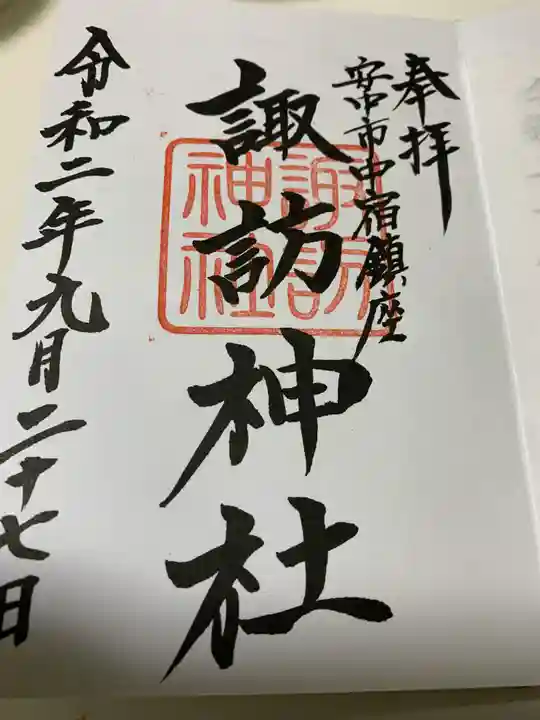 奉拝
安中市中宿鎮座
諏訪神社
諏訪神社
令和二年九月二十七日